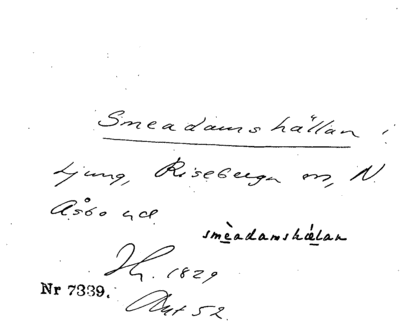 Smeadamshällan i
Ljung, Riseberga sn, N.
Åsbo hd.
smèadamshälan
1829
Nr 7339.
52.